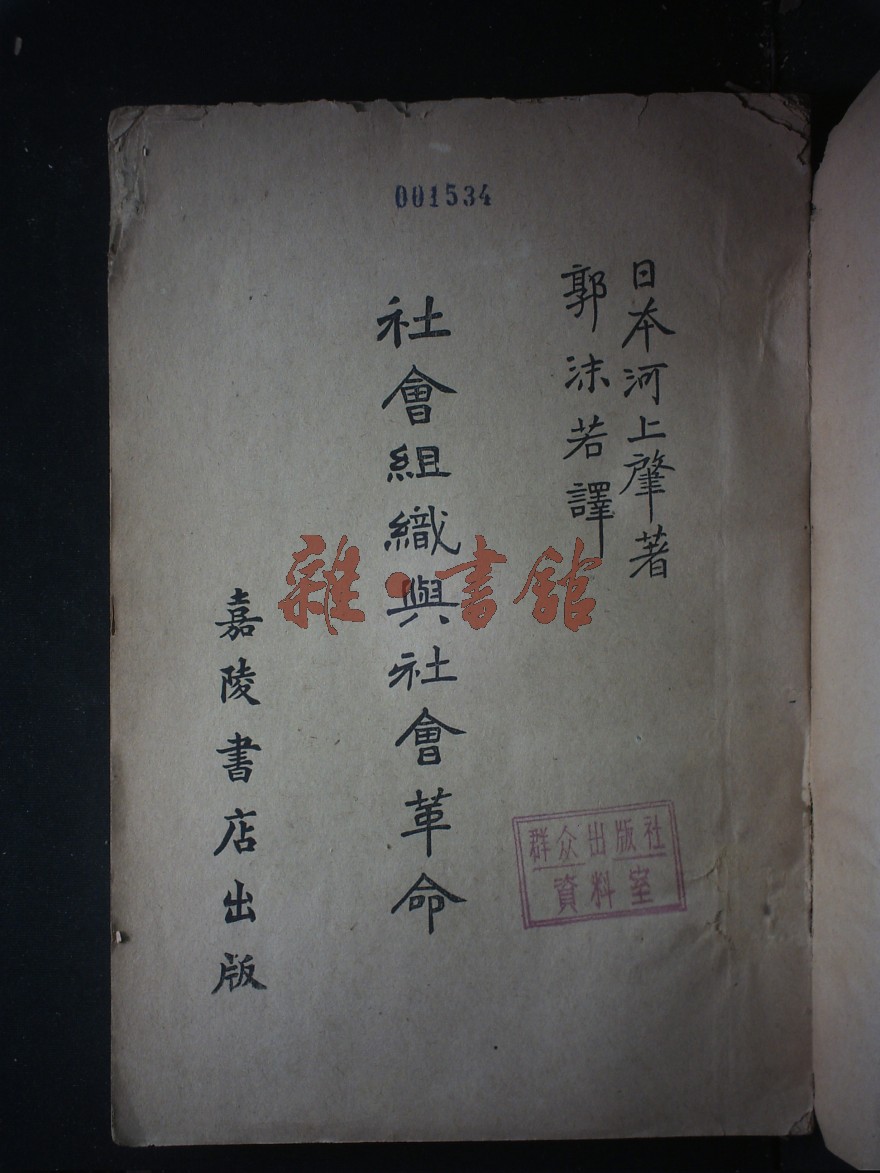 001534
日本河上肇著
郭沫若譯
社會組織與社會革命
嘉陵書店出版
雜·書館
群众出版社
資料室